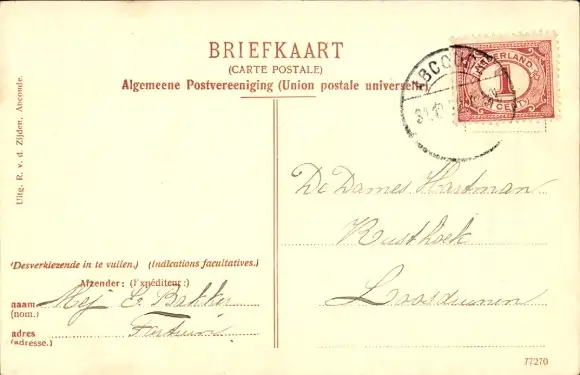 BRIEFKAART
(CARTE POSTALE)
Algemeene Postvereeniging (Union postale universelle)
NEDERLAND
1
CENT
ABCOU
31.12
Uitg. R. v. d. Zijden, Abcoude.
De Dames Hartman
Rusthoek
Loosduinen
(Desverkiezende in te vullen.) (Indications facultatives.)
Afzender: (l'expéditeur:)
naam Mej E. Bakker
(nom.)
adres
(adresse.)
77270